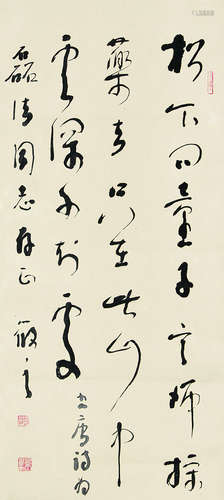 松下问童子言师採
药去只在此山中
云深不知处
书唐诗为
磊清同志存正